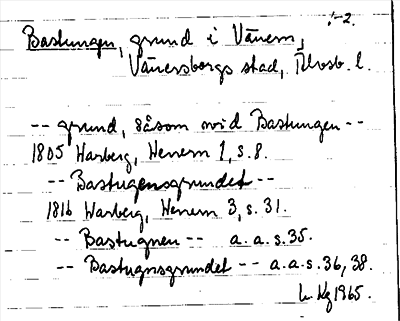 1-2.
Bastungen, grund i Vänern,
Vänersborgs stad, Älvsb. l.
-- grund, såsom wid Bastungen --
1805 Warberg, Wenern 1, s. 8.
-- Bastugensgrundet --
1816 Warberg, Wenern 3, s. 31.
-- Bastugnen -- a. a. s. 35.
-- Bastugnsgrundet -- a. a. s. 36, 38.
Kg 1965.